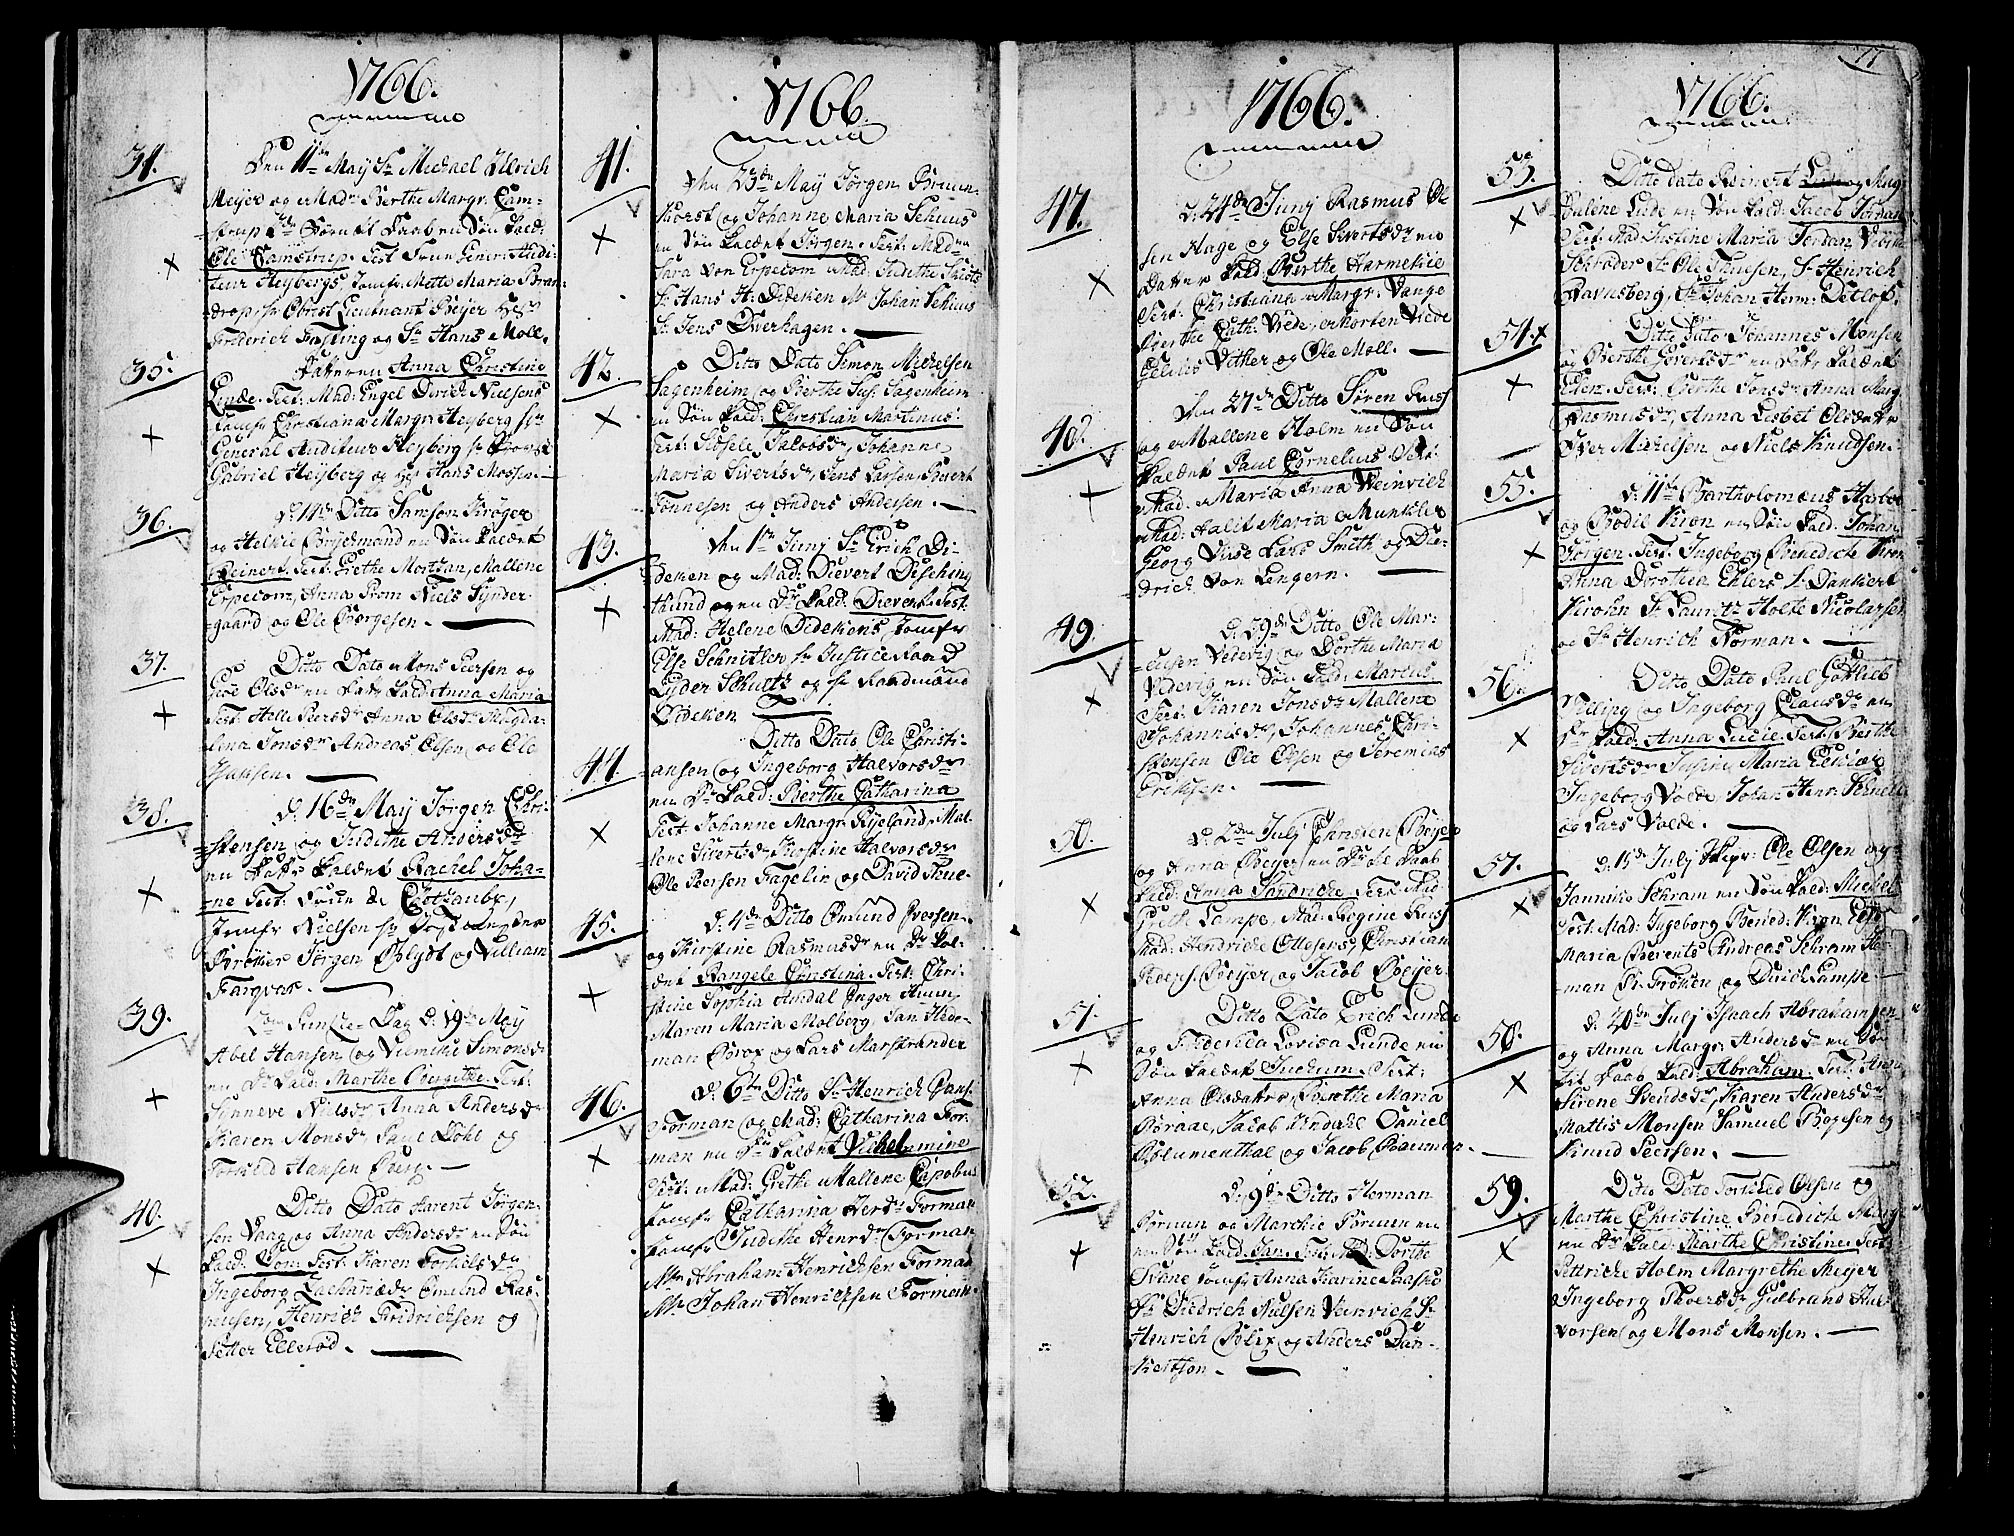 1766.
34.
Den 11te May Sr Michael Ulrich
Meyer og Mad: Berthe Margr: Cam-
strup
Ole Camstrup. Test Frue Gener: Audi-
teur Heybergs, Jomfr: Mette Maria Bran-
drop Hr Obrist Lieutnant Beyer Hr
Friderich Fasting og Sr Hans Moll.
35.
Datteren Anna Christine
Linde. Test: Mad: Engel Nielsens
Jomfr Christiana Margr: Heyberg Hr
General Auditeur Heyberg Hr Provst
Gabriel Heyberg og Hans Mossen.
36.
D: 14de Ditto Samson Krøger
og Helkie en Søn kaldet
Reinert. Test: Grethe Mortsan, Mallene
Erpecom, Anna Prom Niels Synder-
gaard og Ole Børgesen.
37.
Ditto Dato Mons Peersen og
Giøe Olsdr en Dattr kald: Anna Maria
Test Helle Peersdr Anna Olsdr Magda-
lena Jonsdr Andreas Olsen og Ole
38.
D: 16de May Jørgen Chri-
stensen og Judithe Andersdr
en Dattr kaldet Rachel Joha-
ne Test: Frue de Chottaubr,
Jomfr Nielsen Hr
Brøker Jørgen Øblydt og William
Farqvar.
39.
Dag d: 19de May
Abel Hansen og Simonsdr
en Dr kald: Marthe Børgithe. Test:
Sønneve Nielsdr Anna Andersdr
Karen Monsdr Paul Pohl og
Torkild Hansen Berg.
40.
Ditto Dato Harent Jørgen-
sen Vaag og Anna Andersdr en Søn
kald: Test: Karen Torkilsdr
Ingeborg Zachariædr Omund Ras-
musen, Henrich Fridrichsen og
Petter Ellerød.
1766.
41.
Den 23de May Jørgen Bruun-
horst og Johanne Maria Sehuus
en Søn kaldet Jørgen. Test: Mad
Sara von Erpecom Mad: Judethe
Sr Hans H: Dideken Mr Johan Sehuus
Sr Jens Overhagen.
42.
Ditto Dato Simon Michelsen
Sagenheim og Berthe Sus: Sagenheim
en Søn kald: Christian Martinus
Test: Jacobsdr, Johanne
Maria Sivertsdr, Jens Larsen, Berent
Tønnesen og Anders Andersen.
43.
Den 1te Junj Sr Erich Di-
deken og Mad: Dievert Disching
thund og en Dr kald: Dievert. Test:
Mad: Helene Didekens Jomfr
Else Schnitler Hr Justice Raad
Lyder Schultz og Hr Raadmand
Dideken
44.
Ditto Dato Ole Christi-
ansen og Ingeborg Halvorsdr
en Dr kald: Berthe Catharina
Test Johanne Margr: Byeland, Mal-
lene Sivertsdr, Kirstine Halvorsdr
Ole Peersen Fagelie og David Thue-
45.
D: 4de Ditto Omund Iversen
og Kirstine Rasmusdr en Dr kal-
det Rangele Christina. Test: Chri-
stine Sophia Amdal Inger Thuun
Maren Maria Molberg, Jan Ther-
man Brox og Lars Marstrander
46.
D: 6te Ditto Sr Henrich Jans:
Forman og Mad: Catharina For-
man en Dr kaldet Vilhelmine
Test: Mad: Grethe Mallene Capobus
Jomfr Catharina Herdr Forman
Jomfr Judithe Henrdr Forman
Mr Abraham Henrichsen Forman
Mr Johan Henrichsen Formein.
1766.
47.
D: 24de Junj Rasmus Ol-
sen Hage og Else Sivertsdr en
Datter kald: Berthe Harmekie
Test: Christiana Margr: Vange
Berthe Cath: Vide, Morten Vide
Gelius Vither og Ole Moll.
48.
Den 27de Ditto Søren Russ
og Mallene Holm en Søn
kaldet Paul Cornelius. Test:
Mad: Maria Anna Weinrich
Mad: Halit Maria Munkler
Georg Vise Lars Smith og Die-
drich von Lengern.
49.
D: 29de Ditto Ole Mar-
cusen Vedevig og Dorthe Maria
Vedevig en Søn kald: Marcus
Test: Karen Jonsdr Mallene
Johannisdr, Johannes Chri-
stensen Ole Olsen og Jeremias
Erichsen.
50.
D: 2den July Christen Beyer
og Anna Beyer en Dr
kald: Anna Sandricke. Test: Mad:
Greth: Lampe, Mad: Regine Russ
Mad: Hendricke Ottesens, Christian
Beyer og Jacob Beyer.
51.
Ditto Dato Erich Lunde
og Friderica Lovisa Lunde en
Søn kaldet Jochum. Test:
Anna Olsdatter, Berthe Maria
Braae, Jacob Daniel
Blumenthal og Jacob Bauman.
52.
D: 9de Ditto Herman
Bruun og Marchie Bruun en
Søn kald: Jan. Test: Mad: Dorthe
Svane Jomfr Anna Karine Raske
Sr Diedrich Nielsen Veinrich Sr
Henrich Bolix og Anders Dan-
kertson.
1766.
17
53.
Ditto dato Reinert Mag-
dalene Linde en Søn kald: Jacob Jordan
Test: Mad: Justine Maria Jordan,
Schrøder Sr Ole Thuesen, Sr Henrich
Ravensberg, Sr Johan Herm: Detlof.
54.
Ditto Dato Johannes Monsen
og Berthe Govertsdr en Dattr kaldet
Elen. Test: Berthe Jonsdr Anna Marg
Rasmusdr, Anna Lisbet Olsdatter
Over Michelsen og Niels Knudsen.
55.
D: 11te Bartholomæus Harboe
og Bodil Kron en Søn kald: Johan
Jørgen. Test: Ingeborg Benedicte Kron
Anna Dorothea Ehlers Sr Dankert
Krohn Sr Lauritz Holte Nicolaisen
og Sr Henrich Forman.
56.
Ditto Dato Paul Gotlieb
Welling og Ingeborg Clausdr en
Dr kald: Anna Lucie. Test: Berthe
Sivertsdr Maria
Ingeborg Valde Johan Henr: Schnell
og Lars Valde.
57.
D: 15de July Skipr: Ole Olsen og
Jannike Schram en Søn kald: Michel
Test: Mad: Ingeborg Bened: Kron
Maria Berents Andreas Schram He-
man Fr: Frøken og Dirich Lampe
58.
D: 20de July Isaach Abrahamsen
og Anna Margr: Andersdr en Søn
kald: Abraham. Test: Anna
Sirene Bendsdr, Karen Andersdr
Mattis Monsen Samuel Boyesen og
Knud Peersen.
59.
Ditto Dato Torkild Olsen og
Marthe Christine Benedicte
en Dr kald: Marthe Christine. Test:
Pettricke Holm Margrethe Meyer
Ingeborg Thoersdr Gulbrand Hal-
vorsen og Mons Monsen.